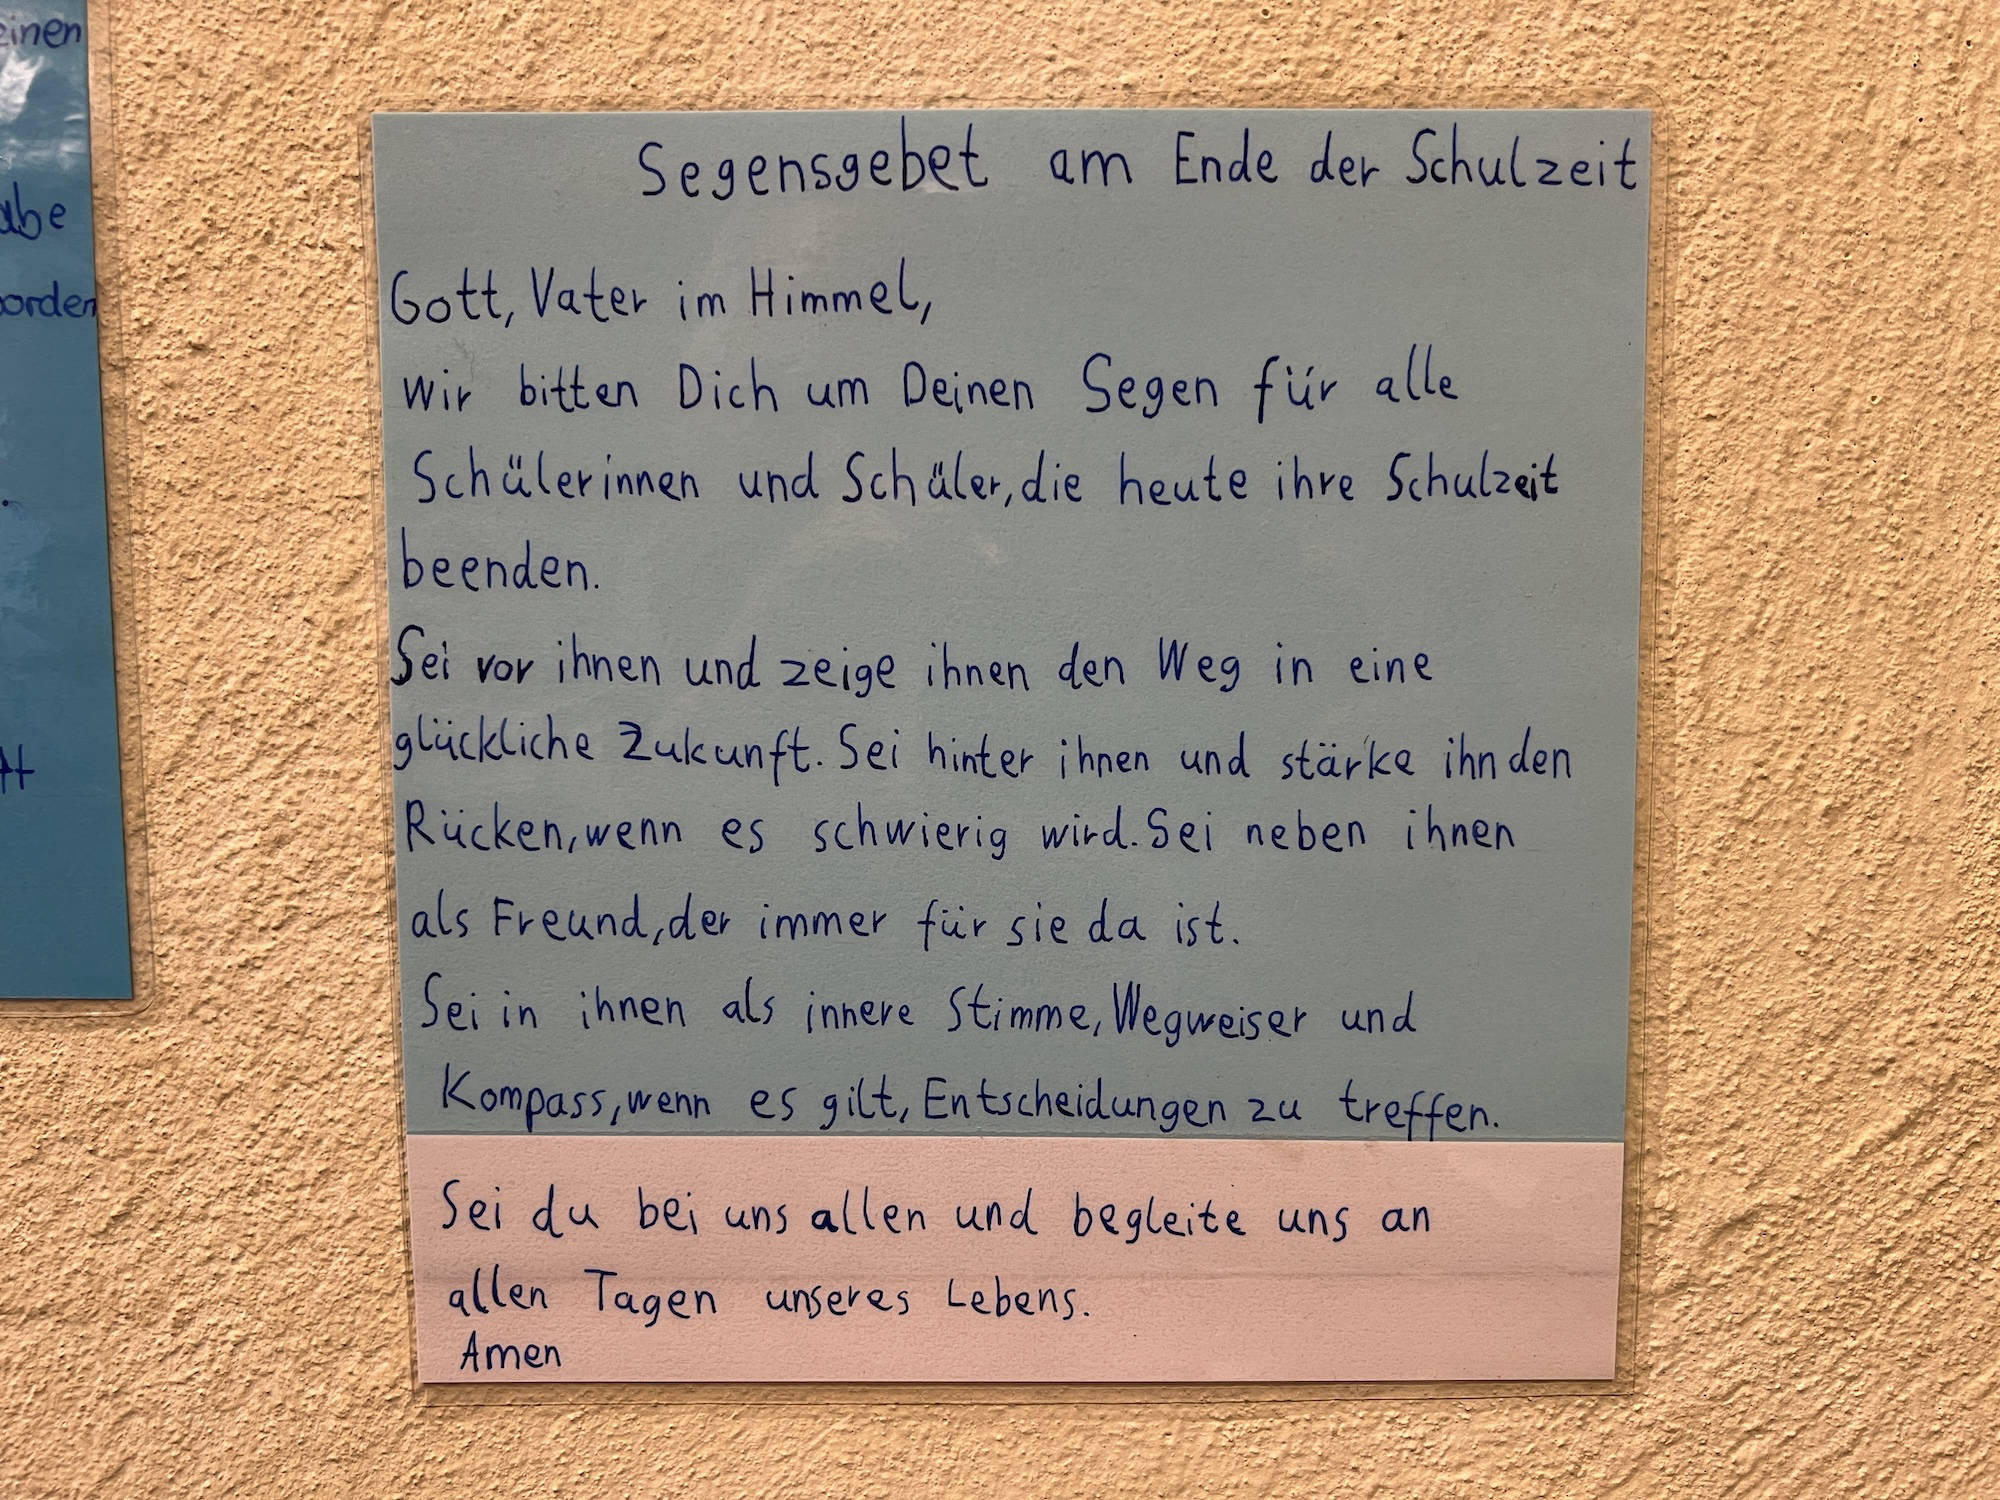 einen
abe
orden
Segensgebet am Ende der Schulzeit
Gott, Vater im Himmel,
wir bitten Dich um Deinen Segen für alle
Schülerinnen und Schüler, die heute ihre Schulzeit
beenden.
Sei vor ihnen und zeige ihnen den Weg in eine
glückliche Zukunft. Sei hinter ihnen und stärke ihn den
Rücken, wenn es schwierig wird. Sei neben ihnen
als Freund, der immer für sie da ist.
Sei in ihnen als innere Stimme, Wegweiser und
Kompass, wenn es gilt, Entscheidungen zu treffen.
Sei du bei uns allen und begleite uns an
allen Tagen unseres Lebens.
Amen